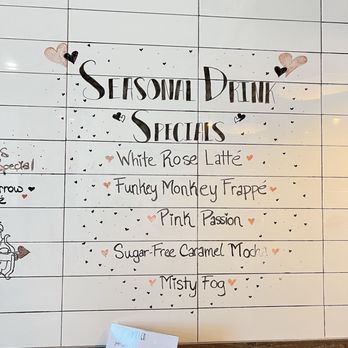 Seasonal Drink
Specials
White Rose Latté
Funkey Monkey Frappé
Pink Passion
Sugar-Free Caramel Mocha
Misty Fog
special